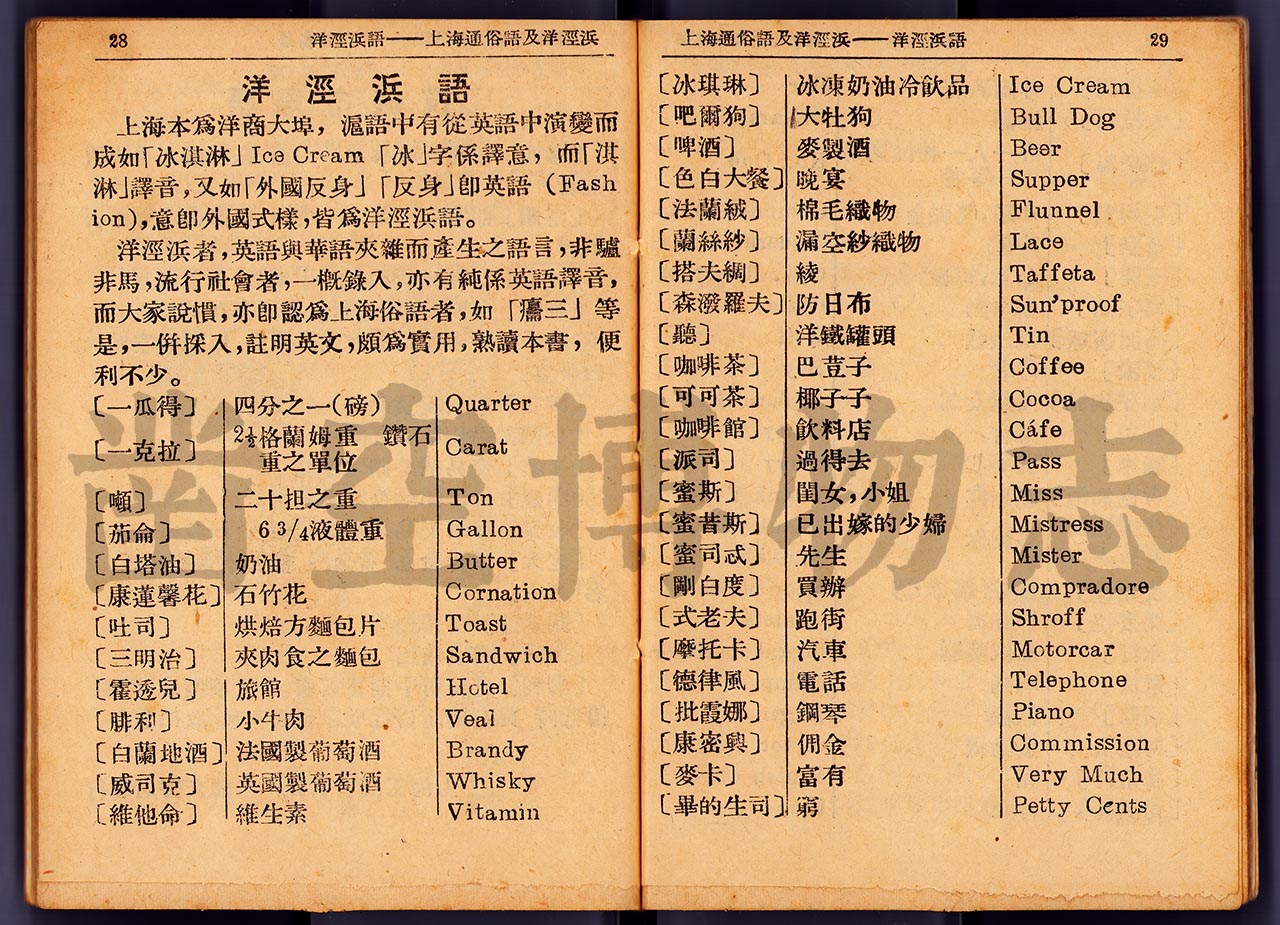 28
洋涇浜語——上海通俗語及洋涇浜
洋涇浜語
上海本爲洋商大埠，滬語中有從英語中演變而
成如「冰淇淋」Ice Cream「冰」字係譯意，而「淇
淋」譯音，又如「外國反身」「反身」卽英語（Fash
ion），意卽外國式樣，皆爲洋涇浜語。
洋涇浜者，英語與華語夾雜而產生之語言，非驢
非馬，流行社會者，一概錄入，亦有純係英語譯音，
而大家說慣，亦卽認爲上海俗語者，如「癟三」等
是，一倂採入，註明英文，頗爲實用，熟讀本書，便
利不少。
〔一瓜得〕 四分之一（磅） Quarter
〔一克拉〕 2½格蘭姆重 鑽石重之單位 Carat
〔噸〕 二十担之重 Ton
〔茄侖〕 6 3/4液體重 Gallon
〔白塔油〕 奶油 Butter
〔康蓮馨花〕 石竹花 Cornation
〔吐司〕 烘焙方麵包片 Toast
〔三明治〕 夾肉食之麵包 Sandwich
〔霍透兒〕 旅館 Hotel
〔腓利〕 小牛肉 Veal
〔白蘭地酒〕 法國製葡萄酒 Brandy
〔威司克〕 英國製葡萄酒 Whisky
〔維他命〕 維生素 Vitamin
上海通俗語及洋涇浜——洋涇浜語
29
〔冰琪琳〕 冰凍奶油冷飲品 Ice Cream
〔吧爾狗〕 大牡狗 Bull Dog
〔啤酒〕 麥製酒 Beer
〔色白大餐〕 晚宴 Supper
〔法蘭絨〕 棉毛織物 Flunnel
〔蘭絲紗〕 漏空紗織物 Lace
〔搭夫綢〕 綾 Taffeta
〔森潑羅夫〕 防日布 Sun'proof
〔聽〕 洋鐵罐頭 Tin
〔咖啡茶〕 巴荳子 Coffee
〔可可茶〕 椰子子 Cocoa
〔咖啡館〕 飲料店 Cáfe
〔派司〕 過得去 Pass
〔蜜斯〕 閨女，小姐 Miss
〔蜜昔斯〕 已出嫁的少婦 Mistress
〔蜜司忒〕 先生 Mister
〔剛白度〕 買辦 Compradore
〔式老夫〕 跑街 Shroff
〔摩托卡〕 汽車 Motorcar
〔德律風〕 電話 Telephone
〔批霞娜〕 鋼琴 Piano
〔康密興〕 佣金 Commission
〔麥卡〕 富有 Very Much
〔畢的生司〕 窮 Petty Cents
凿空博物志